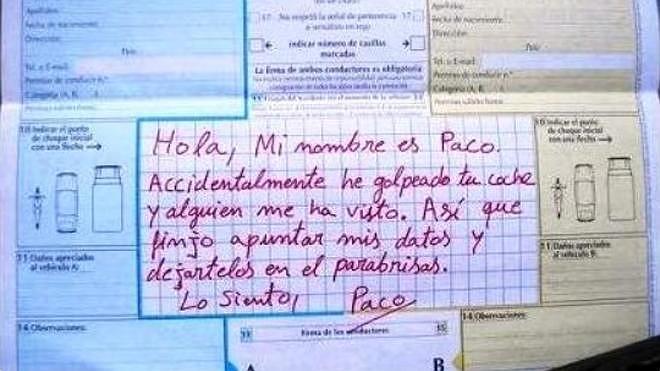 Apellidos:
Fecha de nacimiento:
Dirección:
País:
Tel. o E-mail:
Permiso de conducir n.º
Categoría (A, B,
Permiso válido hasta:
17 No respetó la señal de preferencia 17
o semáforo en rojo
indicar número de casillas
marcadas
La firma de ambos conductores es obligatoria
Apellidos:
Fecha de nacimiento:
Dirección:
País:
Tel. o E-mail:
Permiso de conducir n.º
Categoría (A, B,
Permiso válido hasta:
10 Indicar el punto
de choque inicial
con una flecha
Hola, Mi nombre es Paco.
Accidentalmente he golpeado tu coche
y alguien me ha visto. Así que
finjo apuntar mis datos y
dejártelos en el parabrisas.
Lo siento, Paco
10 Indicar el punto
de choque inicial
con una flecha
11 Daños apreciados
al vehículo A:
11 Daños apreciados
al vehículo B:
14 Observaciones:
15 Firma de los conductores 15
14 Observaciones:
A B